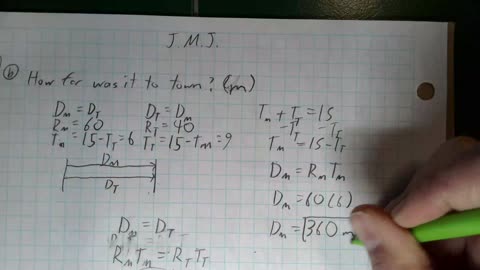 J.M.J.
b) How far was it to town? (m)
Dm = DT
Rm = 60
Tm = 15-TT = 6
DT = Dm
RT = 40
TT = 15-Tm = 9
Dm
DT
Dm = DT
RmTm = RTTT
Tm + TT = 15
-TT -TT
Tm = 15-TT
Dm = RmTm
Dm = 60(6)
Dm = 360 m